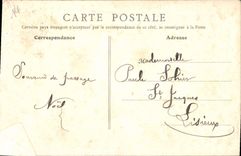 CARTE POSTALE
Certains pays étrangers n'acceptent pas la correspondance de ce côté, se renseigner à la Poste
Correspondance
Adresse
Souvenir de passage
Noël
Mademoiselle
Paule
St Jacques
Lisieux